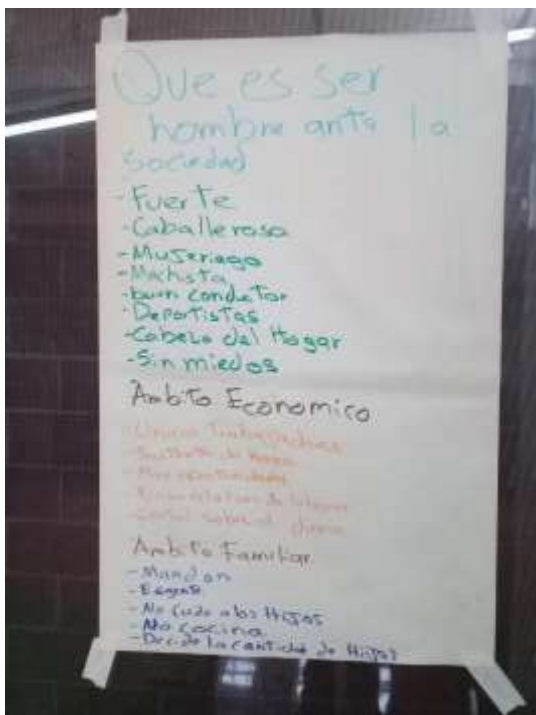 Que es ser
hombre ante la
sociedad
- Fuerte
- Caballeroso
- Mujeriego
- Machista
- buen conductor
- Deportistas
- Cabeza del Hogar
- Sin miedos
Ambito Economico
- Unicos Trabajadores
- Sustento del
- Mas oportunidades
- de
- Control sobre el dinero
Ambito Familiar
- Mandon
- Exigente
- No cuida a los Hijos
- No cocina
- Decide la cantidad de Hijos